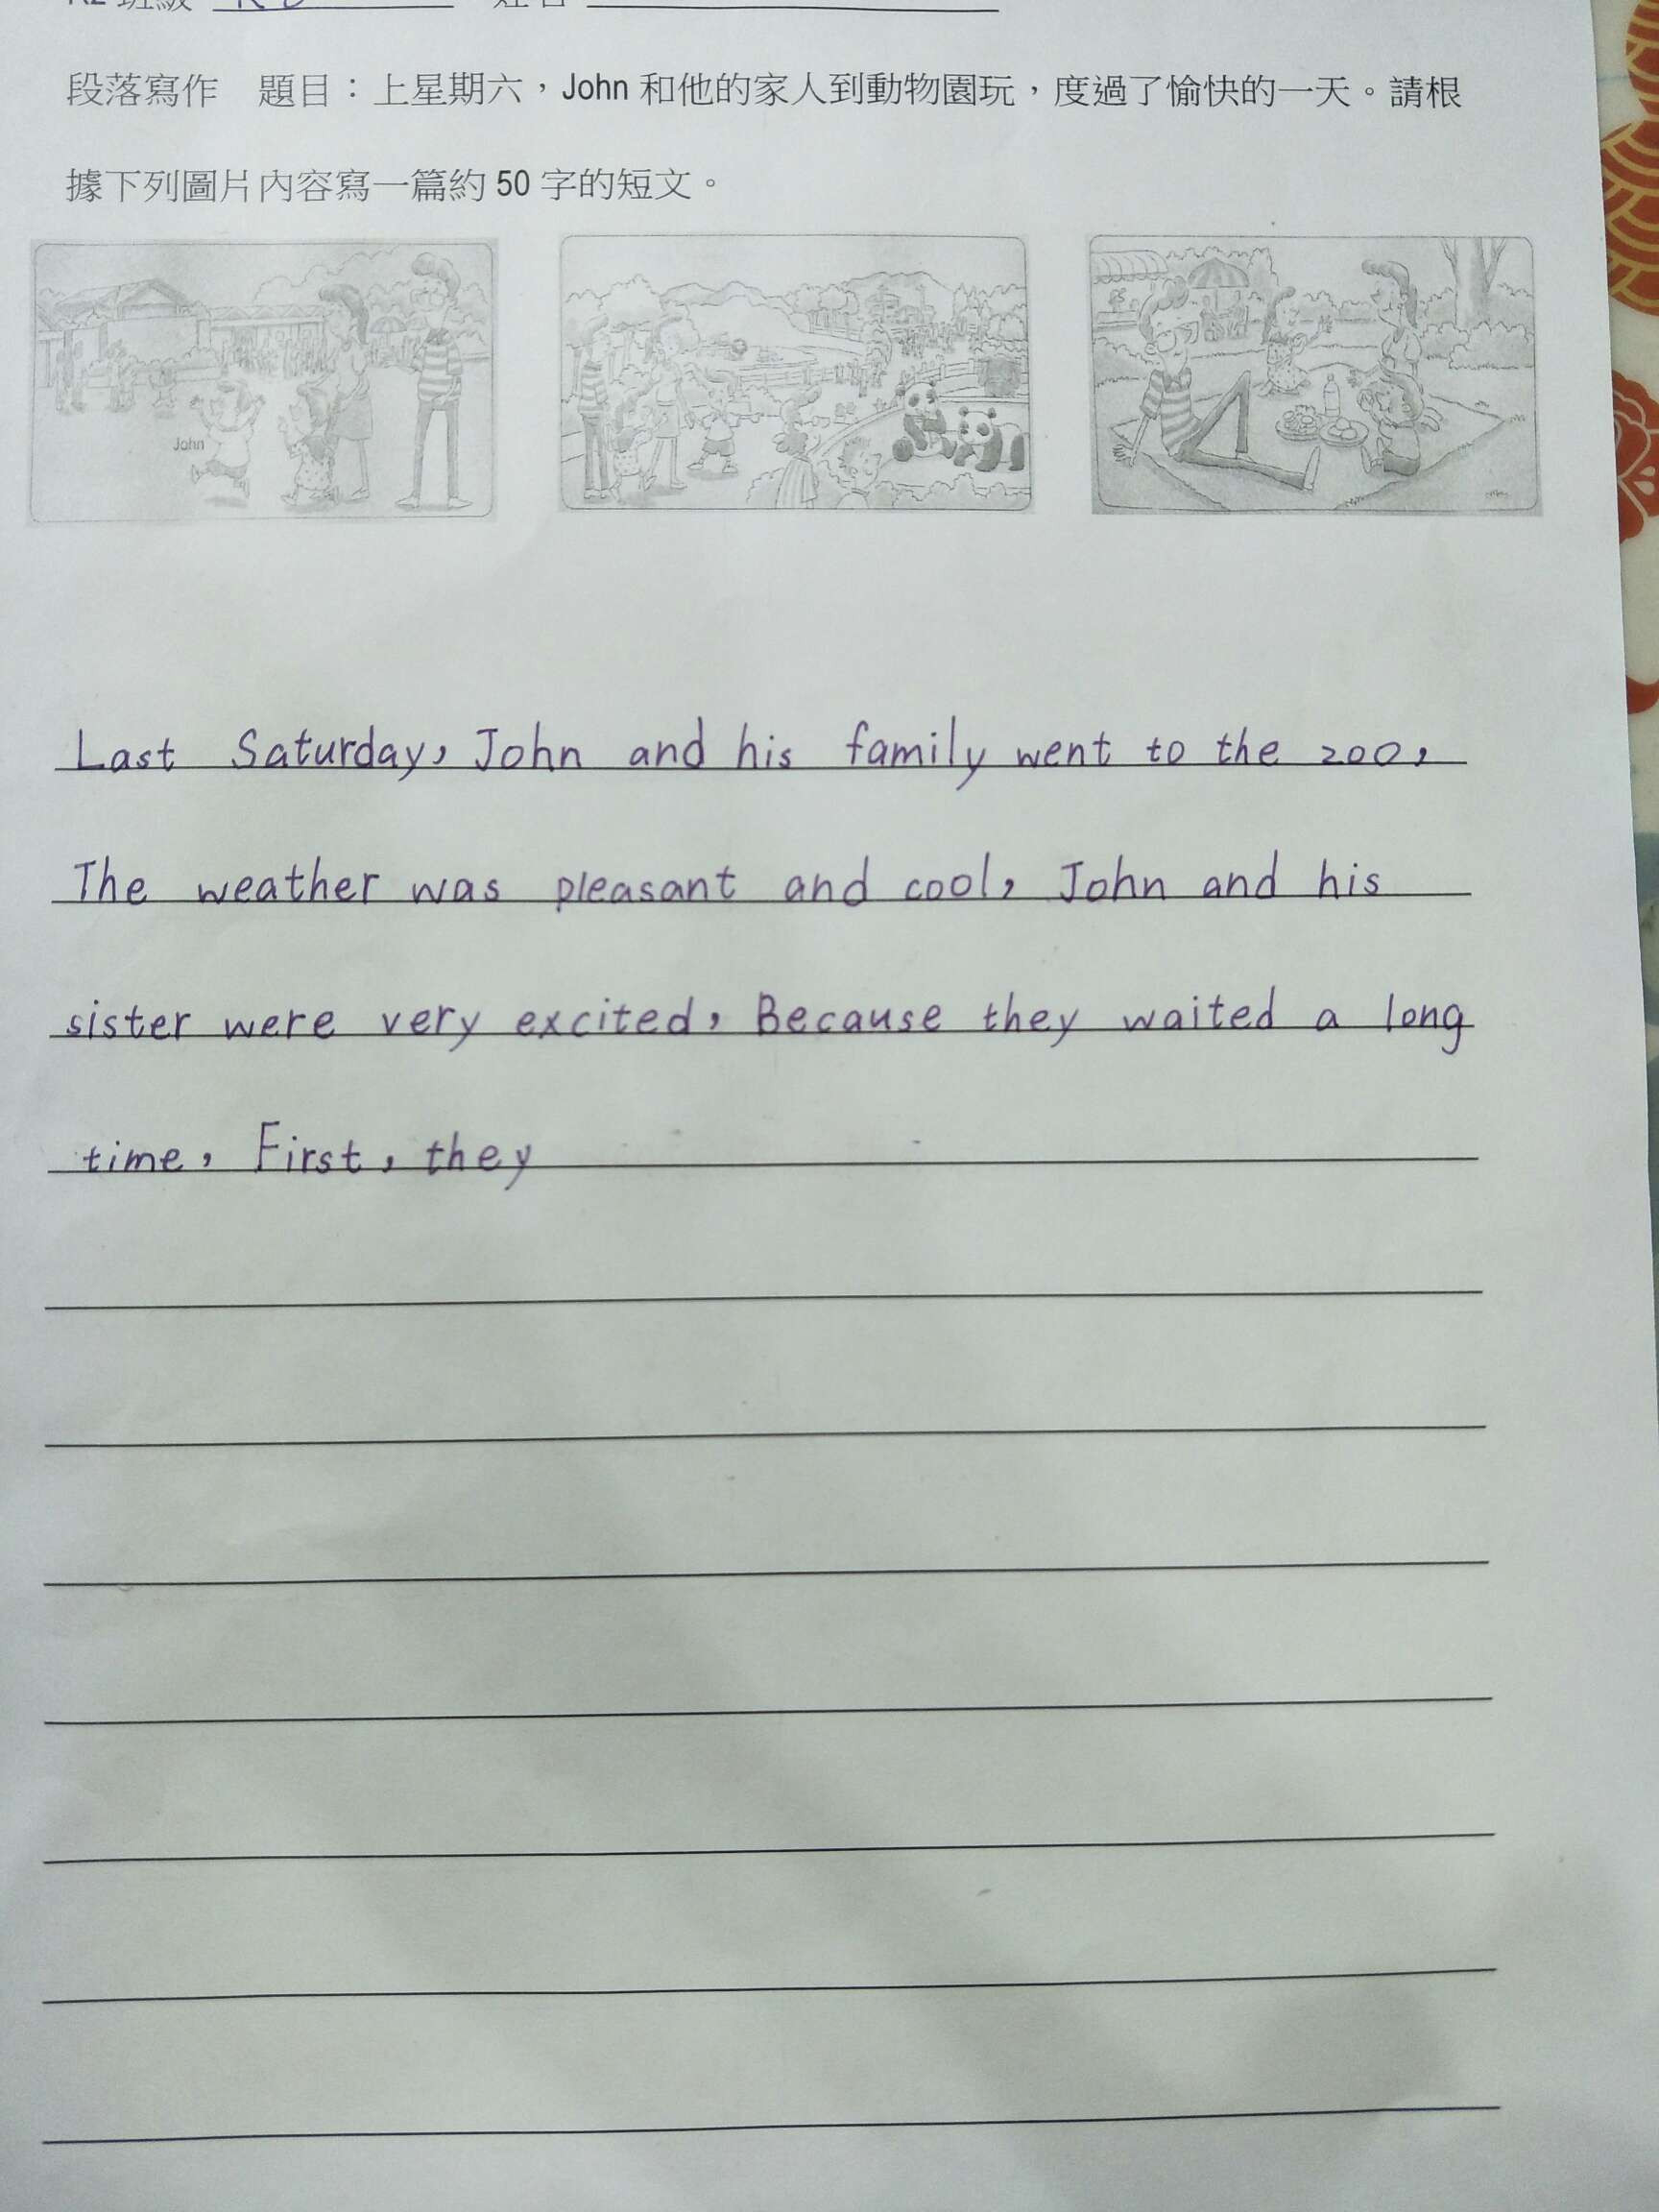 班級
段落寫作　題目：上星期六，John 和他的家人到動物園玩，度過了愉快的一天。請根
據下列圖片內容寫一篇約 50 字的短文。
John
Last Saturday, John and his family went to the zoo,
The weather was pleasant and cool, John and his
sister were very excited, Because they waited a long
time, First, they